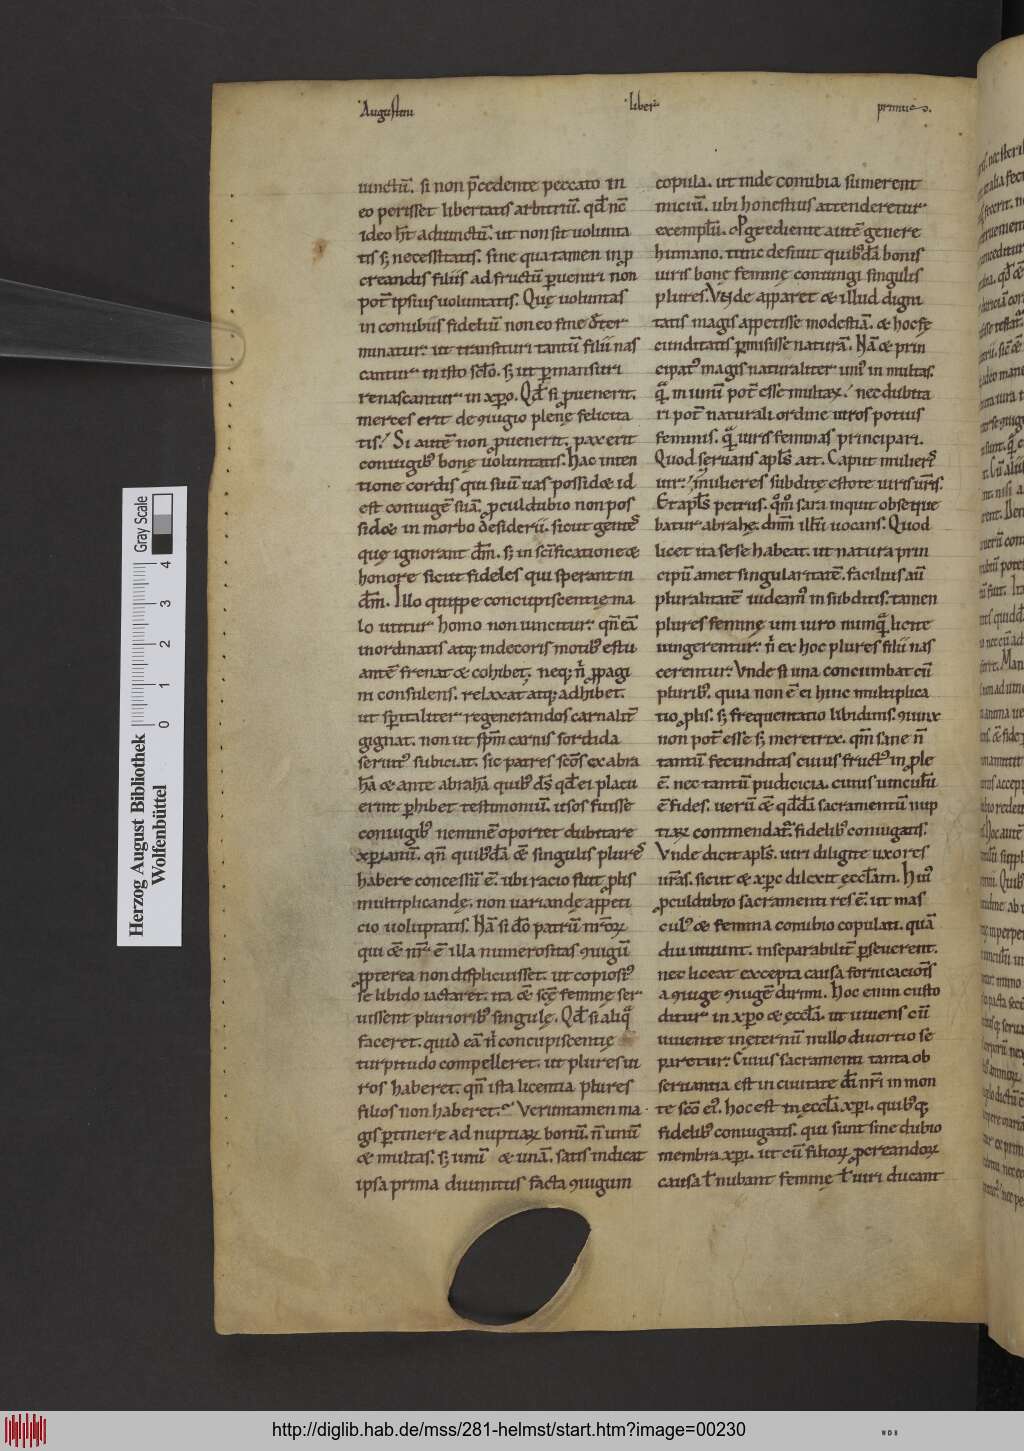 Augustini
liber
primus
iunctū. si non p̄cedente peccato in
eo perisset libertatis arbitriū. qđ nc̄
ideo hͭ adiunctū. ut non sit uolunta
tis sꝫ necessitatis. sine qua tamen in ꝓ
creandis filiis ad fructū ꝑueniri non
pot̄ ipsius uoluntatis. Quę uoluntas
in conubiis fideliū non eo fine đter
minatur ut transituri tantū filii nas
cantur in isto scło. sꝫ ut ꝑmansuri
renascantur in xp̄o. Qđ si ꝓuenerit.
merces erit de ꝯiugio plenę felicita
tis. Si autē non ꝓuenerit. pax erit
coniugibꝰ bonę uoluntatis. Hac inten
tione cordis qui suū uas possidet id
est coniugē suā. ꝓculdubio non pos
sidet in morbo desiderii. sicut gentes
quę ignorant đm. sꝫ in sc̄ificatione et
honore sicut fideles qui sperant in
đm. Illo quippe concupiscentię ma
lo utitur homo non uincitur. qn̄ eā
inordinatis atqꝫ indecoris motibꝰ estu
antē frenat et cohibet. neqꝫ n̄ ꝓpagi
ni consulens. relaxat atqꝫ adhibet.
ut sp̄italiter regenerandos carnalit̄
gignat. non ut sp̄m carnis sordida
seruitꝰ subiciat. sic patres sc̄os ex abra
hā et ante abrahā quibꝰ đs qđ ei placu
erint ꝑhibet testimoniū. usos fuisse
coniugibꝰ neminē oportet dubitare
xp̄ianū. qn̄ quibꝰdā et̄ singulis plures
habere concessū ē. ubi racio fuit ꝓlis
multiplicandę. non uariandę appeti
cio uoluptatis. Nā si đo patrū nr̄oꝝ
qui et̄ nr̄ ē illa numerositas ꝯiugū
ꝓpterea non displicuisset. ut copiosiꝰ
se libido iactaret. ita et̄ sc̄ę feminę ser
uissent plurioribꝰ singulę. Qđ si aliq̄
faceret. quid eā n̄ concupiscentię
turpitudo compelleret. ut plures ui
ros haberet. qn̄ ista licentia plures
filios non haberet. Veruntamen ma
gis ꝑtinere ad nuptiaꝝ bonū. n̄ unū
et multas. sꝫ unū et unā. satis indicat
ipsa prima diuinitus facta ꝯiugum
copula. ut inde conubia sumerent
iniciū. ubi honestius attenderetur
exemplū. Ꝓgrediente autē genere
humano. iunc̄ desiuit quibꝰdā bonis
uiris bonę feminę coniungi singulis
plures. Vnde apparet et illud digni
tatis magis appetisse modestiā. et hoc fe
cunditatis ꝑmisisse naturā. Nā et prin
cipatꝰ magis naturaliter unꝰ in multas.
q̄ in unū pot̄ esse multaꝝ. nec dubita
ri pot̄ naturali ordine uiros potius
feminis. q̄ uiris feminas principari.
Quod seruans apl̄s ait. Caput mulieris
uir. mulieres subditę estote uiris ur̄is.
Et apl̄s petrus. qͦmͦ sara inquit obseque
batur abrahę. dn̄m illū uocans. Quod
licet ita sese habeat. ut natura prin
cipiū amet singularitatē. facilius aū
pluralitatē uideamꝰ in subditis. tamen
plures feminę uni uiro nunq̄ licite
iungerentur. n̄ ex hoc plures filii nas
cerentur. Vnde si una concumbat cū
pluribꝰ. quia non ē ei hinc multiplica
tio ꝓlis. sꝫ frequentatio libidinis. ꝯiunx
non pot̄ esse sꝫ meretrix. qm̄ sane n̄
tantū fecunditas cuius fructꝰ in ꝓle
ē. nec tantū pudicicia. cuius uinculū
ē fides. uerū et̄ qđdā sacramentū nup
tiaꝝ commendat̄ fidelibꝰ coniugatis.
Vnde dicit apl̄s. uiri diligite uxores
ur̄as. sicut et xp̄c dilexit eccl̄am. Huiꝰ
ꝓculdubio sacramenti res ē. ut mas
culꝰ et femina conubio copulati. quā
diu uiuunt. inseparabilit̄ ꝑseuerent.
nec liceat excepta causa fornicacionis
a ꝯiuge ꝯiugē dirimi. Hoc enim custo
ditur in xp̄o et ęccl̄a. ut uiuens cū
uiuente inęternū nullo diuortio se
paretur. Cuius sacramenti tanta ob
seruantia est in ciuitate đi nr̄i in mon
te sc̄o eiꝰ. hoc est in ęccl̄a xp̄i. quibꝰqꝫ
fidelibꝰ coniugatis. qui sunt sine dubio
membra xp̄i. ut cū filioꝝ ꝓcreandoꝝ
causa ł nubant feminę ł uiri ducant
Herzog August Bibliothek
Wolfenbüttel
Gray Scale
0 1 2 3 4
http://diglib.hab.de/mss/281-helmst/start.htm?image=00230